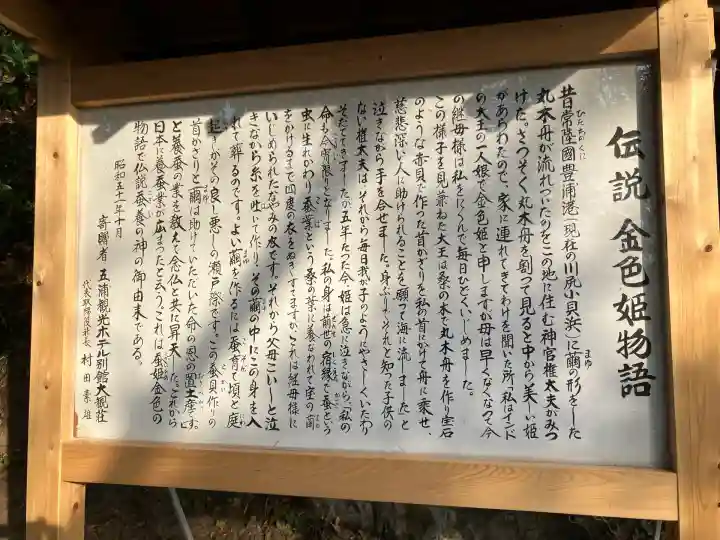 伝説 金色姫物語
昔常陸國豊浦港(現在の川尻小貝浜)に繭の形をした
丸木舟が流れついたのをこの地に住む神官権太夫がみつ
けた。さっそく丸木舟を割って見ると中から美しい姫
があらわれたので、家に連れてきてわけを聞いた所「私はインド
の大王の一人娘で金色姫と申しますが母は早くなくなって今
の継母様は私をにくんで毎日ひどくいじめました。
この様子を見兼ねた大王は桑の木で丸木舟を作り宝石
のような赤貝で作った首かざりを私の首にかけて舟に乗せ、
慈悲深い人に助けられることを願って海に流しました」と
泣きながら手を合せました。身ぶるいそれと知った子供の
ない権太夫は、それから毎日我が子のようにやさしくいたわり
そだててきましたが五年たった今、姫は急に泣きながら、「私の
命も今宵限りとなりました。私の身は前世の宿縁で蚕という
虫に生れかわり蚕葉という桑の葉に養なわれて宝の繭
をかけるまで四度の衣をぬぎすてますが、これは継母様に
いじめられたなやみの衣です。それから父母こいしと泣
きながら糸を吐いて作り、その繭の中にこの身を入
れて葬るのです。よい繭を作るには蚕育て頃と庭
起きがその良し悪しの瀬戸際です。この蚕貝作りの
首かざりと繭は助けていただいた命の恩の置土産です。」
と養蚕の業を教えて念仏と共に昇天した。これから
日本に養蚕業が広まったと云う。これは蚕姫金色の
物語で仏説蚕養の神の御由来である。
昭和五十一年十月
寄贈者 五浦観光ホテル別館大観荘
代表取締役社長 村田素雄